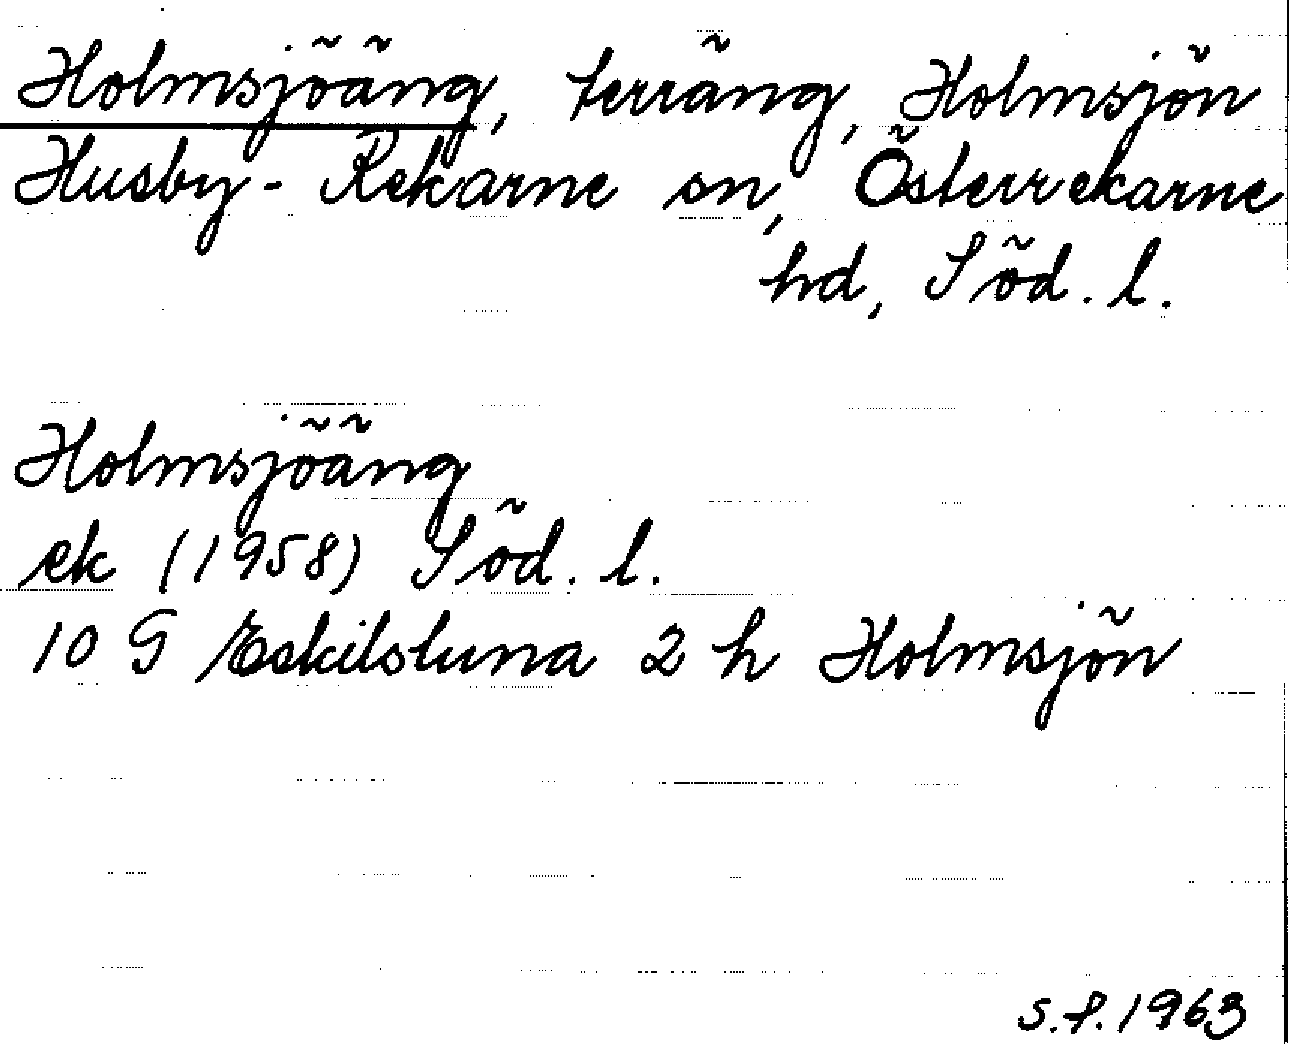 Holmsjöäng, terräng, Holmsjön
Husby-Rekarne sn, Österrekarne
hd, Söd. l.
Holmsjöäng
ek (1958) Söd. l.
10 G Eskilstuna 2 h Holmsjön
S.P. 1963